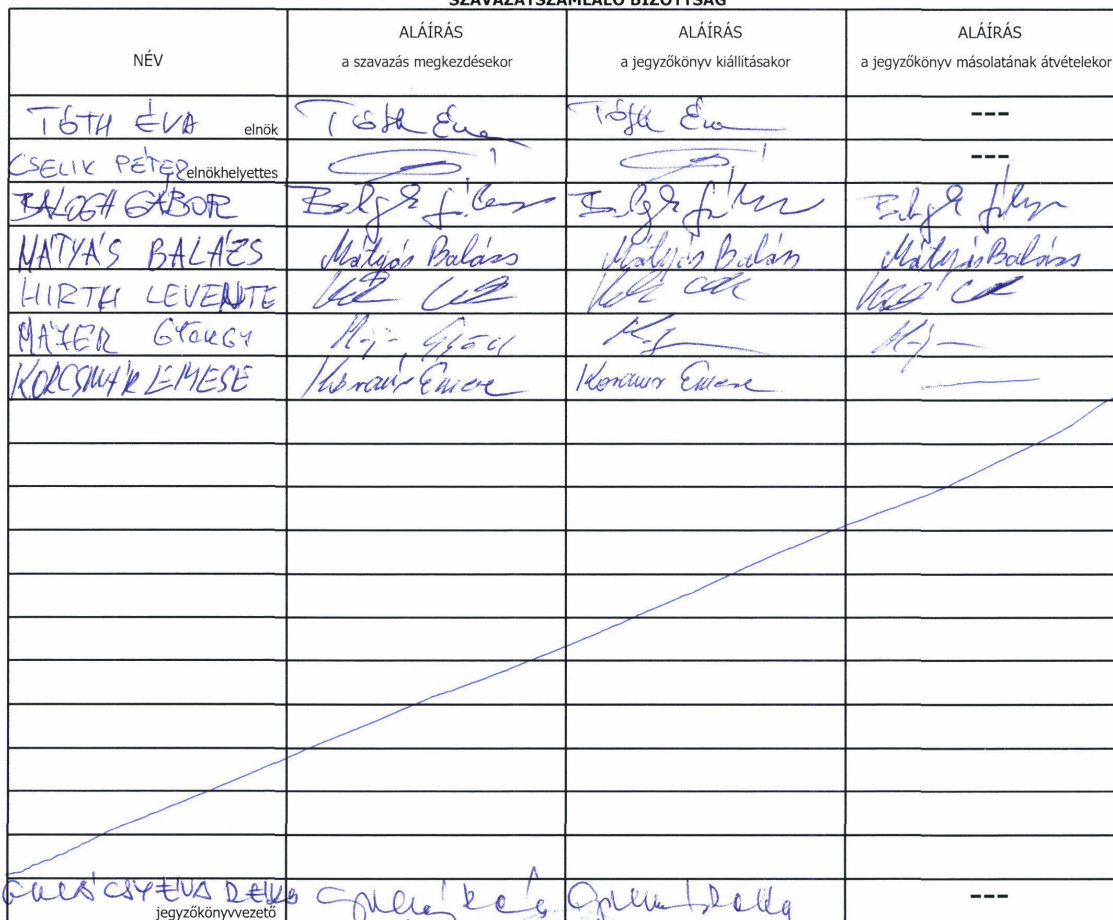 SZAVAZATSZÁMLÁLÓ BIZOTTSÁG
NÉV
ALÁÍRÁS
a szavazás megkezdésekor
ALÁÍRÁS
a jegyzőkönyv kiállításakor
ALÁÍRÁS
a jegyzőkönyv másolatának átvételekor
TÓTH ÉVA elnök Tóth Éva Tóth Éva ---
CSELIK PÉTER elnökhelyettes ---
BALOGH GÁBOR
MÁTYÁS BALÁZS Mátyás Balázs Mátyás Balázs Mátyás Balázs
HIRTH LEVENTE
MAYER GYÖRGY
KORCSMÁR EMESE Korcsmár Emese Korcsmár Emese
jegyzőkönyvvezető ---